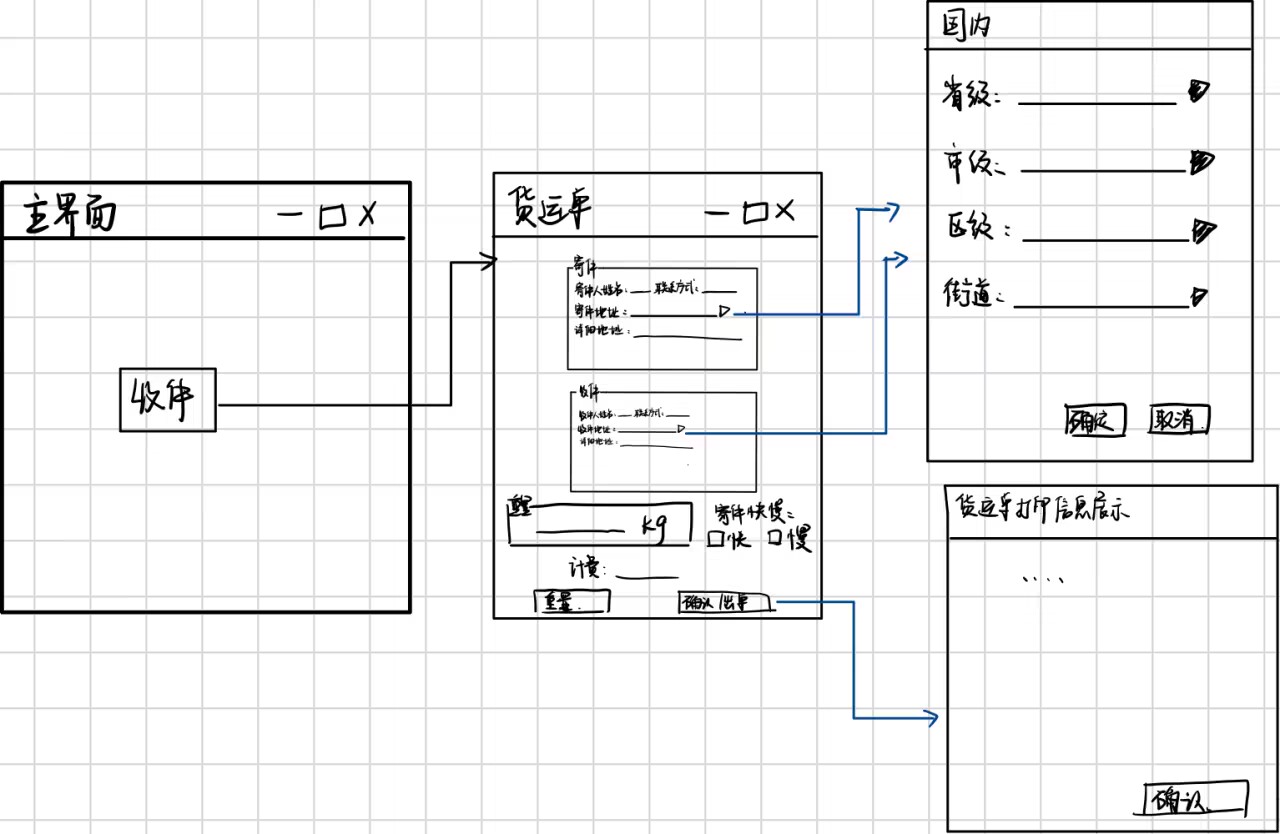 主界面
收件
货运单
寄件
寄件人姓名: 联系方式:
寄件地址:
详细地址:
收件
收件人姓名: 联系方式:
收件地址:
详细地址:
重量
kg
寄件快慢:
快 慢
计费:
重量
确认/出单
国内
省级:
市级:
区级:
街道:
确定 取消
货运单打印信息展示
....
确认